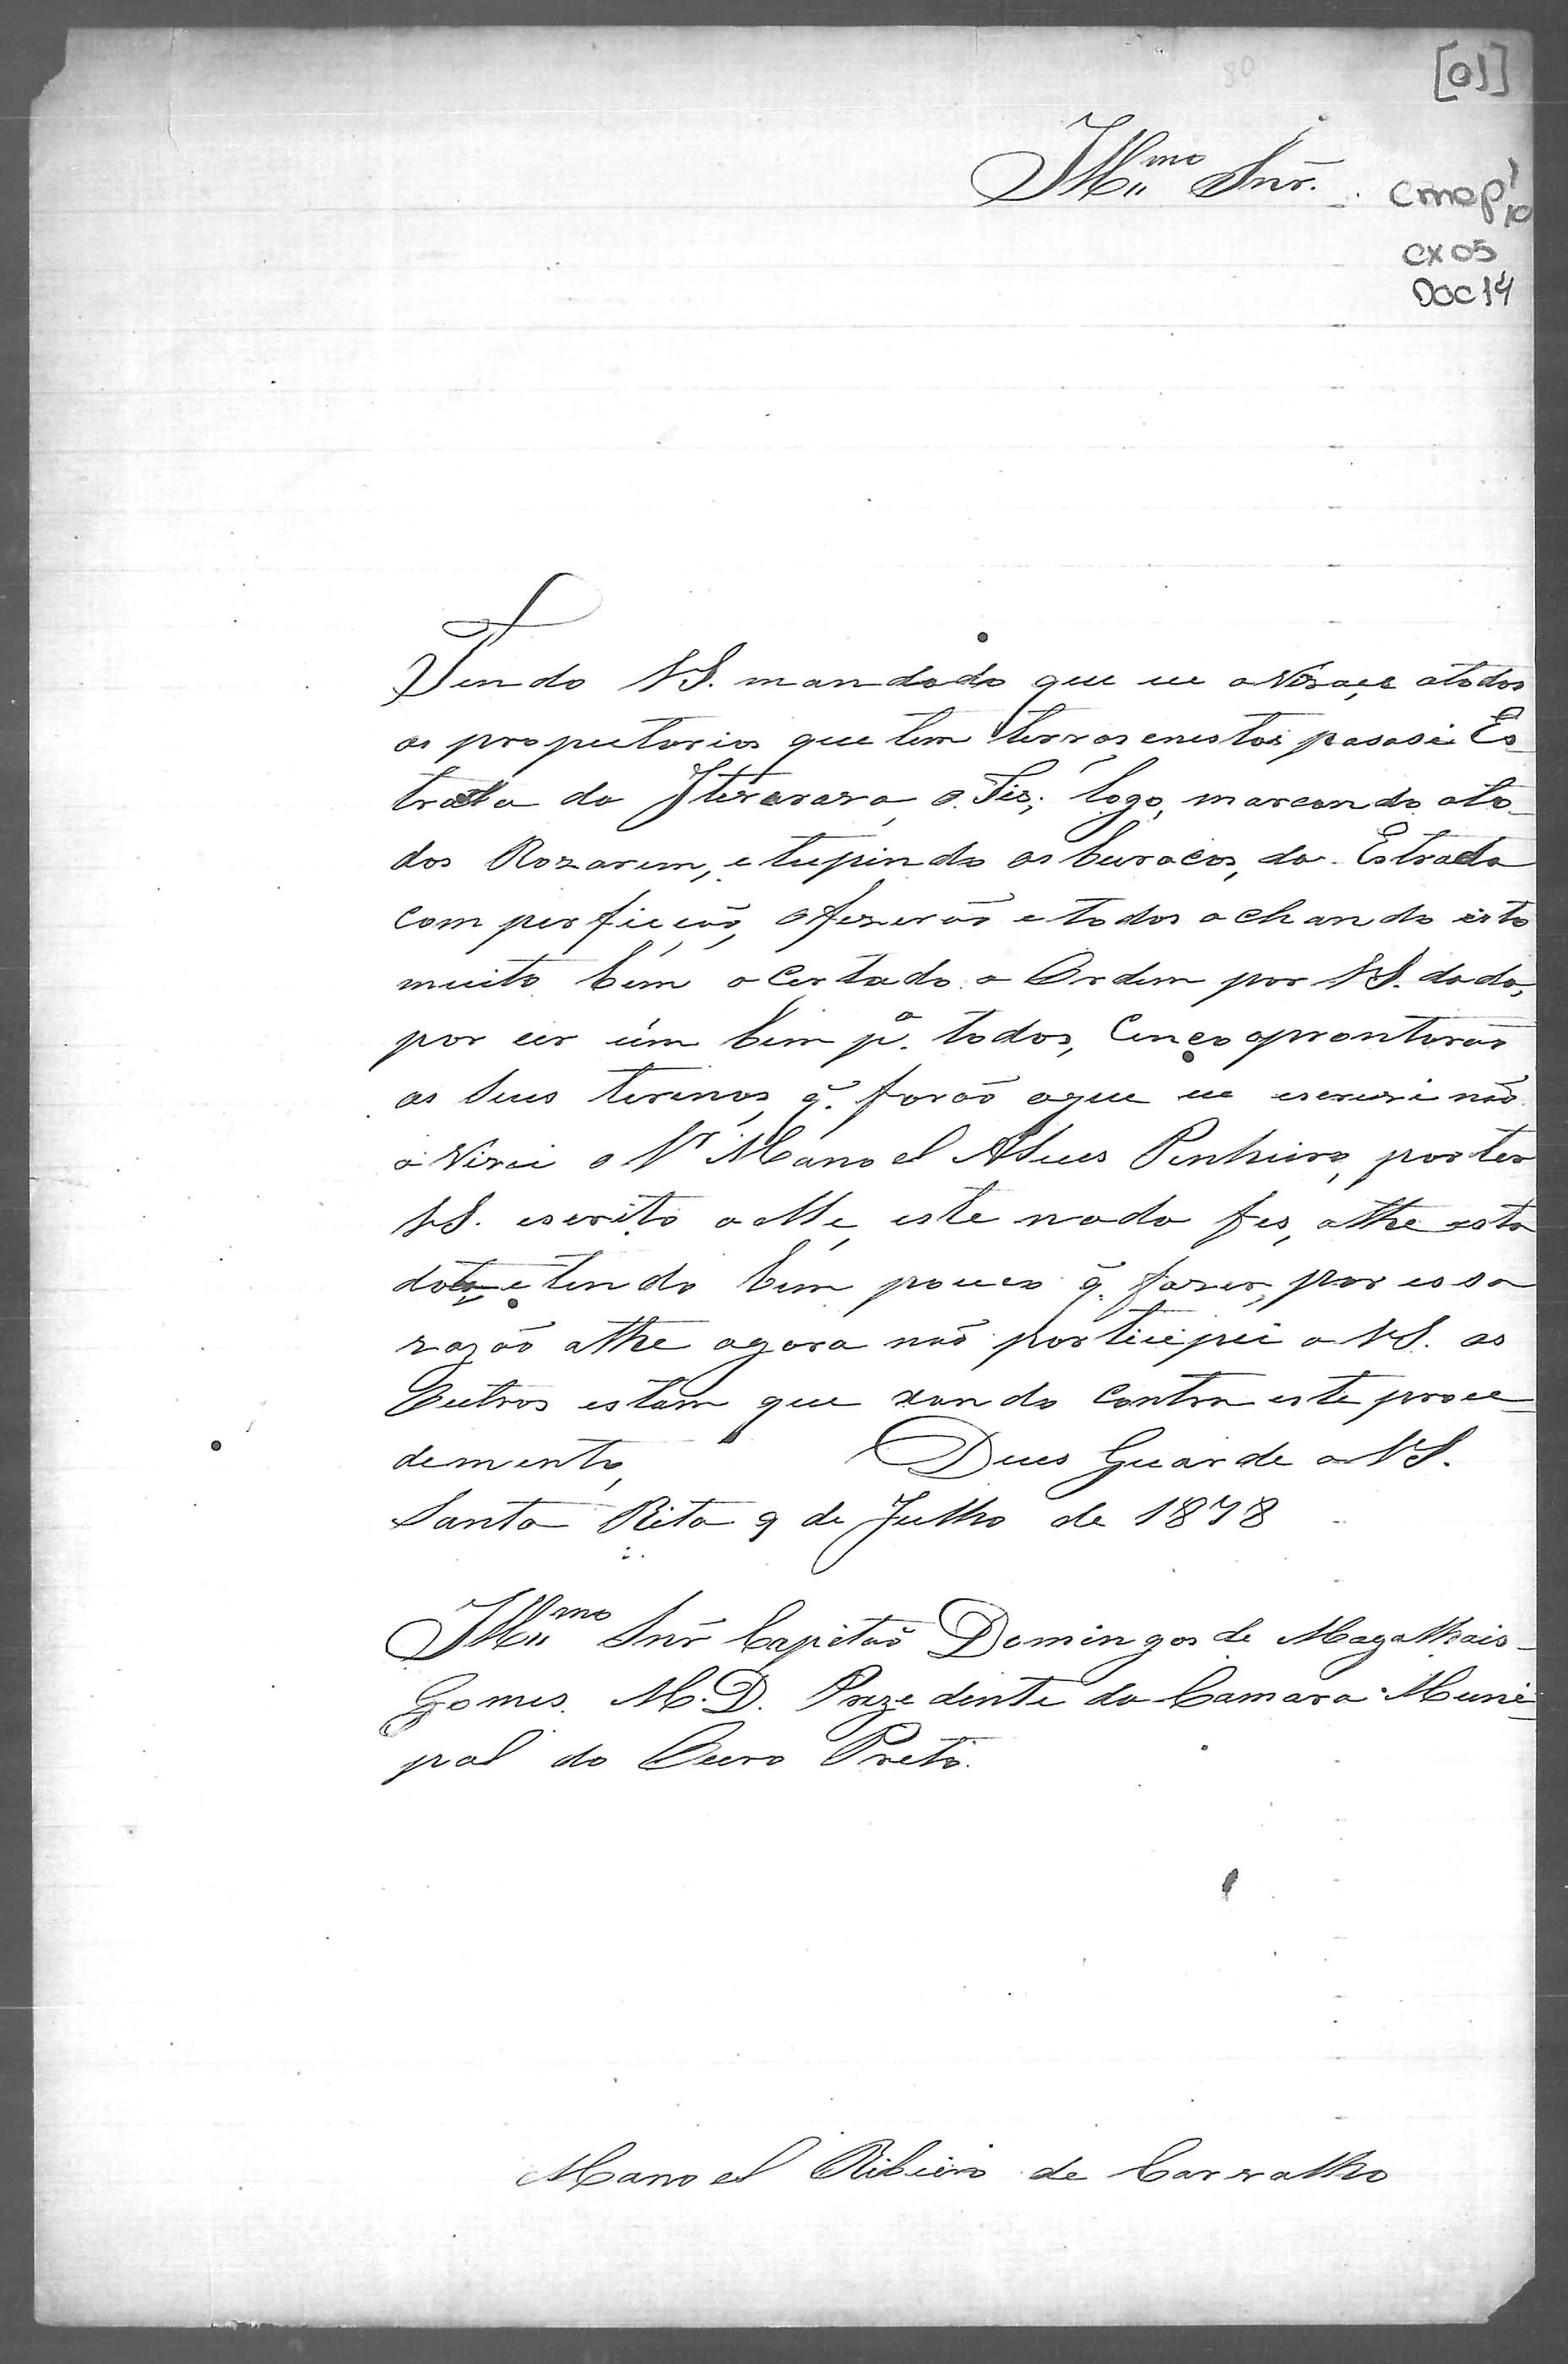 80
[01]
Illmo Snr.
CMOP 1/10
CX 05
DOC 14
Tendo VS. mandado que eu a Vizace atodos
os propietarios que tem terras enestas pasase Es
trada do o Fis; logo, marcando ato
dos Rozarem, e tupindo os buracos, da Estrada
com perficcaõ, ofizeraõ e todos achando isto
muito bem a Certado a Ordem por VS. dada,
por cer úm bem pa. todos, Cenço aprontaraõ
os Seus terenos, q. foraõ aque eu escrevi não
a Vizei o Sr Manoel Alves Pinheiro, por ter
VS. escrito a elle, este nada fes, athe esta
data e tendo bem pouco q. fazer, por essa
razaõ athe agora naõ participei a VS. os
Outros estam que xando contra este proce
demento, Deus Guarde a VS.
Santa Rita 9 de Julho de 1878
Illmo Snr Capitaõ Domingos de Magalhais
Gomes. M.D. Prezedente da Camara Muni
pal do Ouro Preto.
Manoel Ribeiro de Carvalho